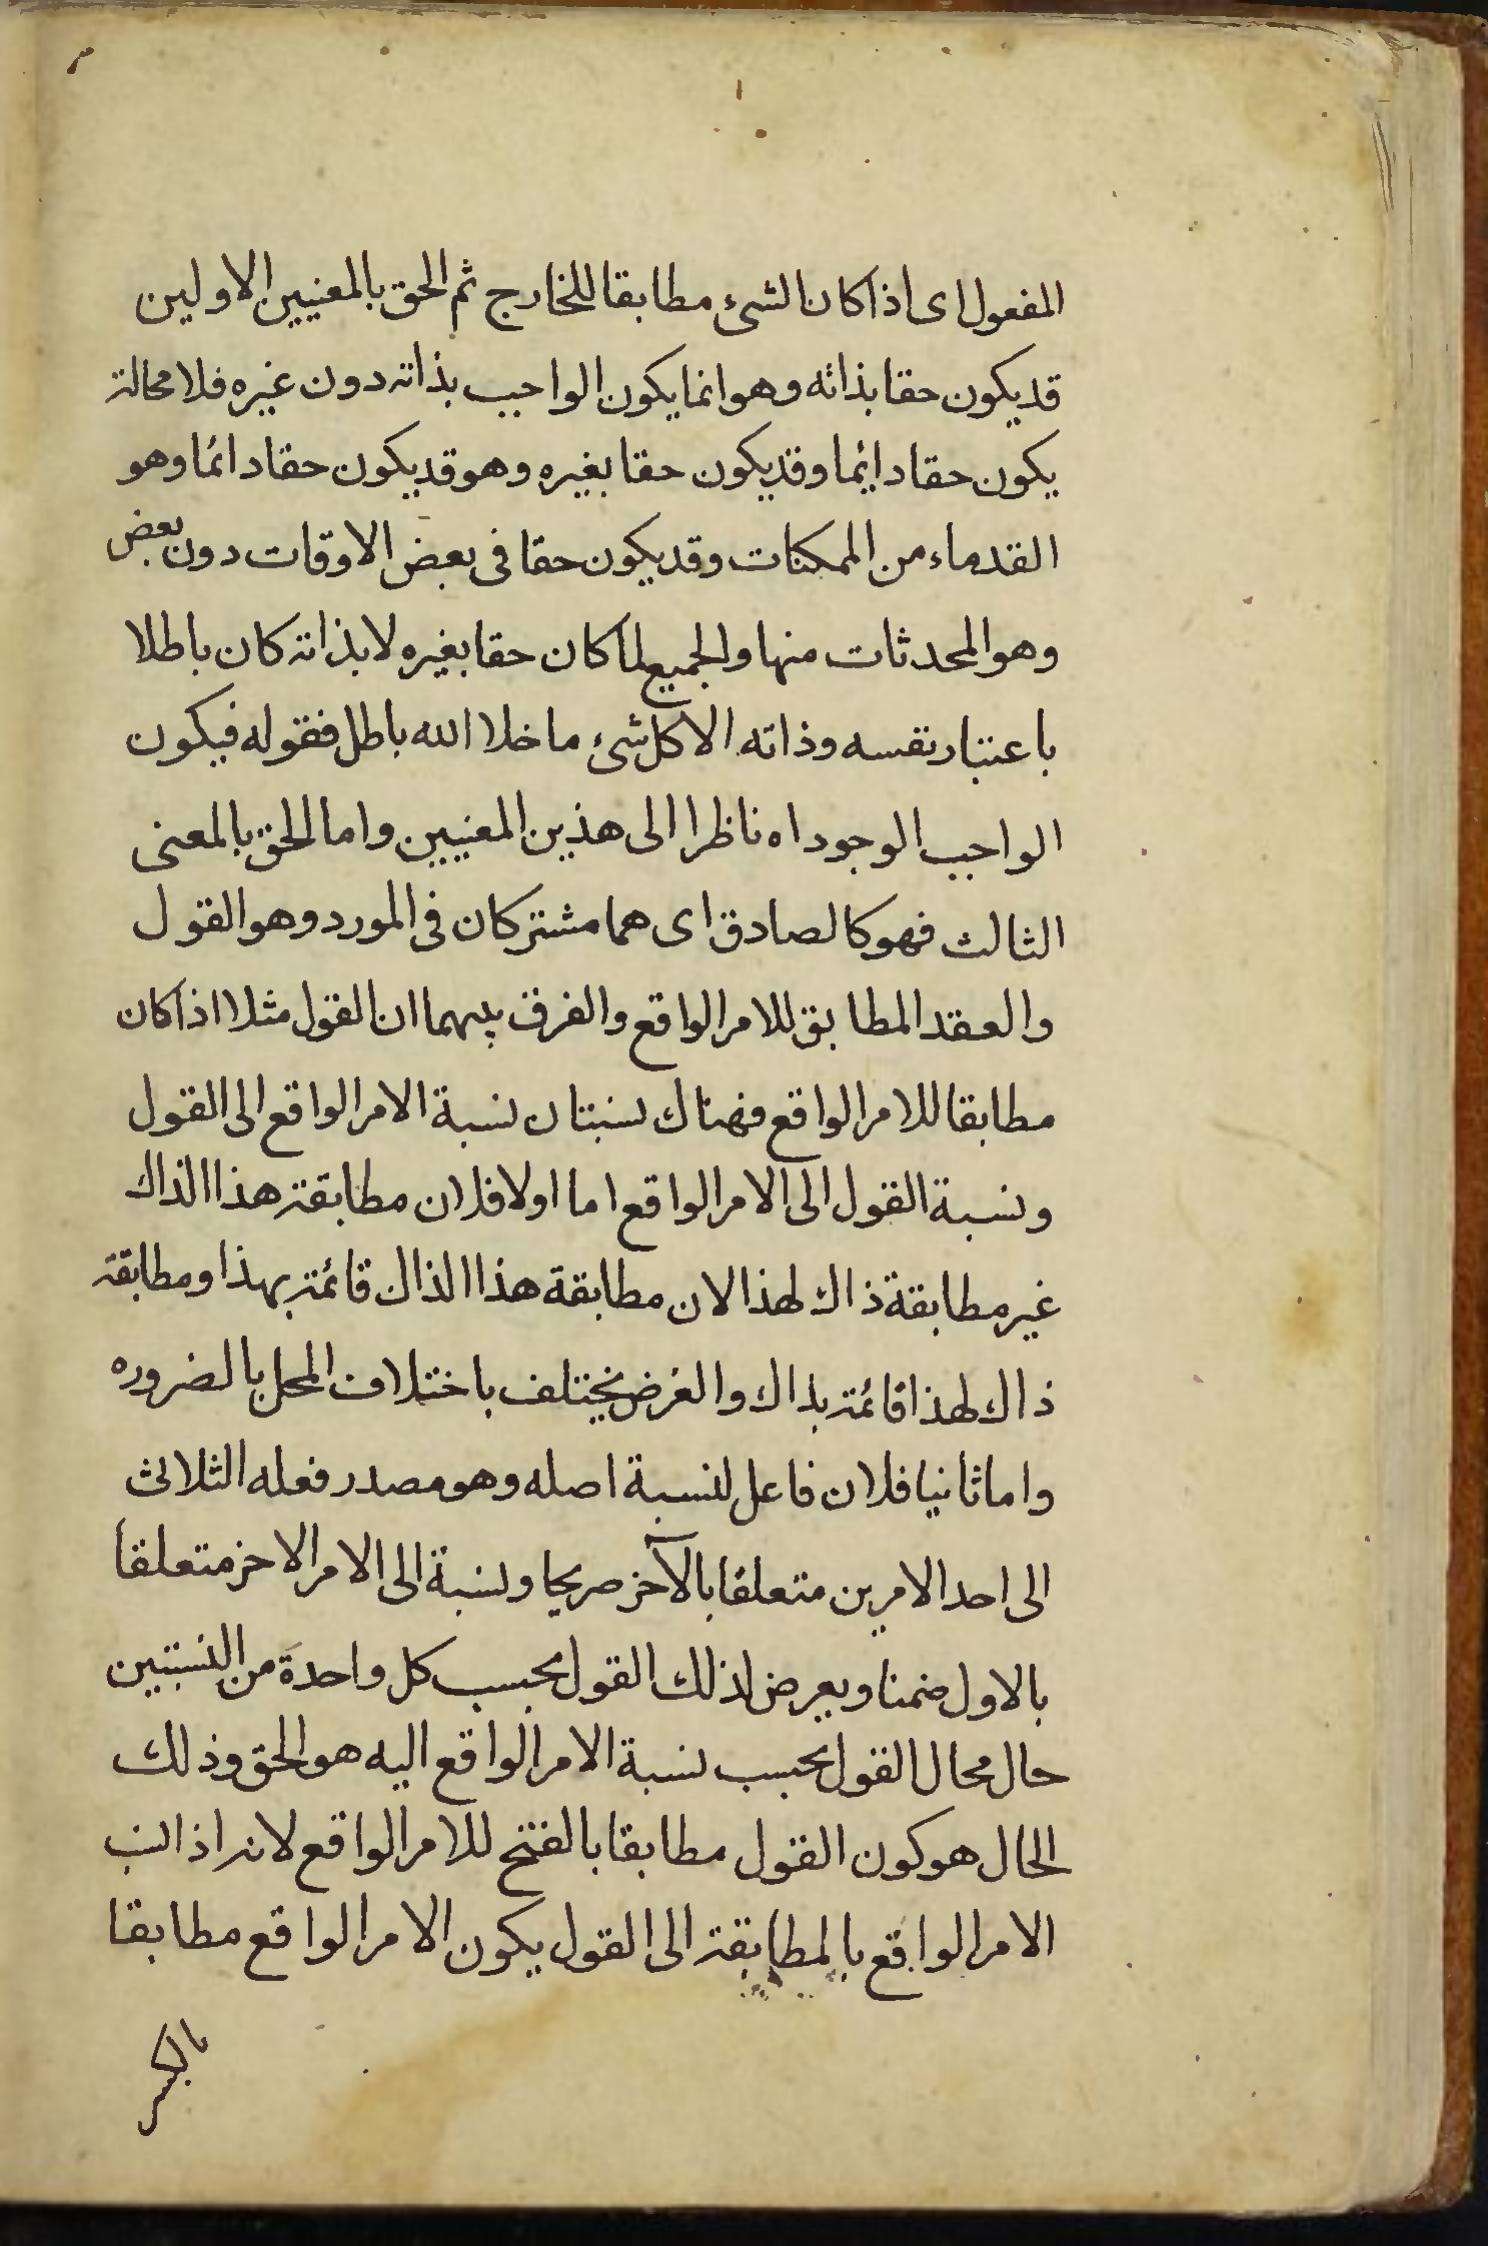 المفعول اى اذا كان الشىء مطابقا للخارج ثم الحق بالمعنيين الاولين
قد يكون حقا بذاته وهو انما يكون الواجب بذاته دون غيره فلا محالة
يكون حقا دائما وقد يكون حقا بغيره وهو قد يكون حقا دائما وهو
القدماء من الممكنات وقد يكون حقا فى بعض الاوقات دون بعض
وهو المحدثات منها والجميع لما كان حقا بغيره لا بذاته كان باطلا
باعتبار نفسه وذاته الا كل شىء ما خلا الله باطل فقوله فيكون
الواجب الوجود اه ناظرا الى هذين المعنيين واما الحق بالمعنى
الثالث فهو كالصادق اى هما مشتركان فى المورد وهو القول
والعقد المطابق للامر الواقع والفرق بينهما ان القول مثلا اذا كان
مطابقا للامر الواقع فهناك نسبتان نسبة الامر الواقع الى القول
ونسبة القول الى الامر الواقع اما اولا فلان مطابقة هذا الذاك
غير مطابقة ذاك لهذا لان مطابقة هذا الذاك قائمة بهذا ومطابقة
ذاك لهذا قائمة بذاك والغرض يختلف باختلاف المحل بالضروره
واما ثانيا فلان فاعل لنسبة اصله وهو مصدر فعله الثلاثى
الى احد الامرين متعلقا بالآخر صريحا ونسبة الى الامر الاخر متعلقا
بالاول ضمنا ويعرض لذلك القول بحسب كل واحدة من النسبتين
حال محال القول بحسب نسبة الامر الواقع اليه هو الحق وذلك
الحال هو كون القول مطابقا بالفتح للامر الواقع لانه اذا نسب
الامر الواقع بالمطابقة الى القول يكون الامر الواقع مطابقا
بالكسر